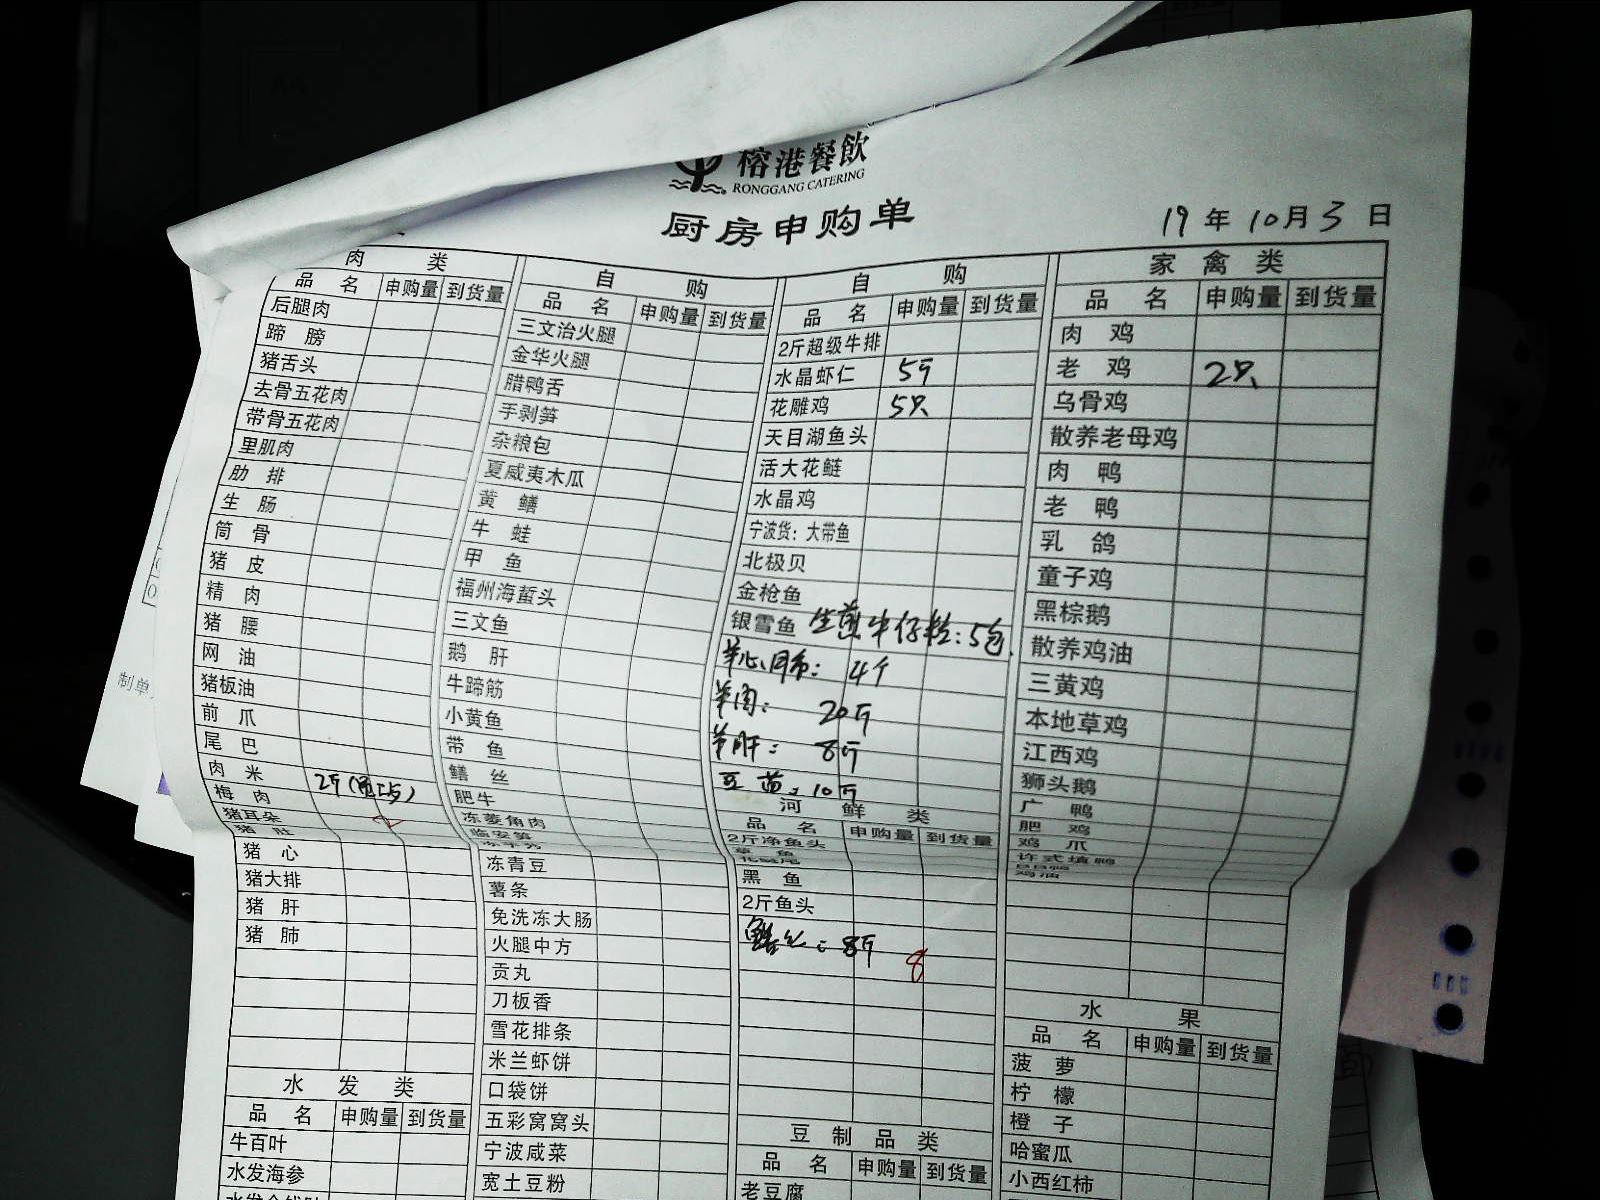 榕港餐飲
RONGGANG CATERING
厨房申购单
19年10月3日
肉类
品名 申购量 到货量
后腿肉
蹄膀
猪舌头
去骨五花肉
带骨五花肉
里肌肉
肋排
生肠
筒骨
猪皮
精肉
猪腰
网油
猪板油
前爪
尾巴
肉米
梅肉 2斤
猪耳朵
猪肚
猪心
猪大排
猪肝
猪肺
水发类
品名 申购量 到货量
牛百叶
水发海参
自购
品名 申购量 到货量
三文治火腿
金华火腿
腊鸭舌
手剥笋
杂粮包
夏威夷木瓜
黄鳝
牛蛙
甲鱼
福州海蜇头
三文鱼
鹅肝
牛蹄筋
小黄鱼
带鱼
鳝丝
肥牛
冻菱角肉
临安笋
冻青豆
薯条
免洗冻大肠
火腿中方
贡丸
刀板香
雪花排条
米兰虾饼
口袋饼
五彩窝窝头
宁波咸菜
宽土豆粉
自购
品名 申购量 到货量
2斤超级牛排
水晶虾仁 5斤
花雕鸡 5只
天目湖鱼头
活大花鲢
水晶鸡
宁波货：大带鱼
北极贝
金枪鱼
银雪鱼 生煎牛仔粒：5包
羊心、肚：4个
羊肉：20斤
羊肝：8斤
豆苗：10斤
河鲜类
品名 申购量 到货量
2斤净鱼头
黑鱼
2斤鱼头
鳝丝：8斤 8
豆制品类
品名 申购量 到货量
老豆腐
家禽类
品名 申购量 到货量
肉鸡
老鸡 2只
乌骨鸡
散养老母鸡
肉鸭
老鸭
乳鸽
童子鸡
黑棕鹅
散养鸡油
三黄鸡
本地草鸡
江西鸡
狮头鹅
广鸭
肥鸡
鸡爪
许式填鸭
鸡油
水果
品名 申购量 到货量
菠萝
柠檬
橙子
哈蜜瓜
小西红柿
制单